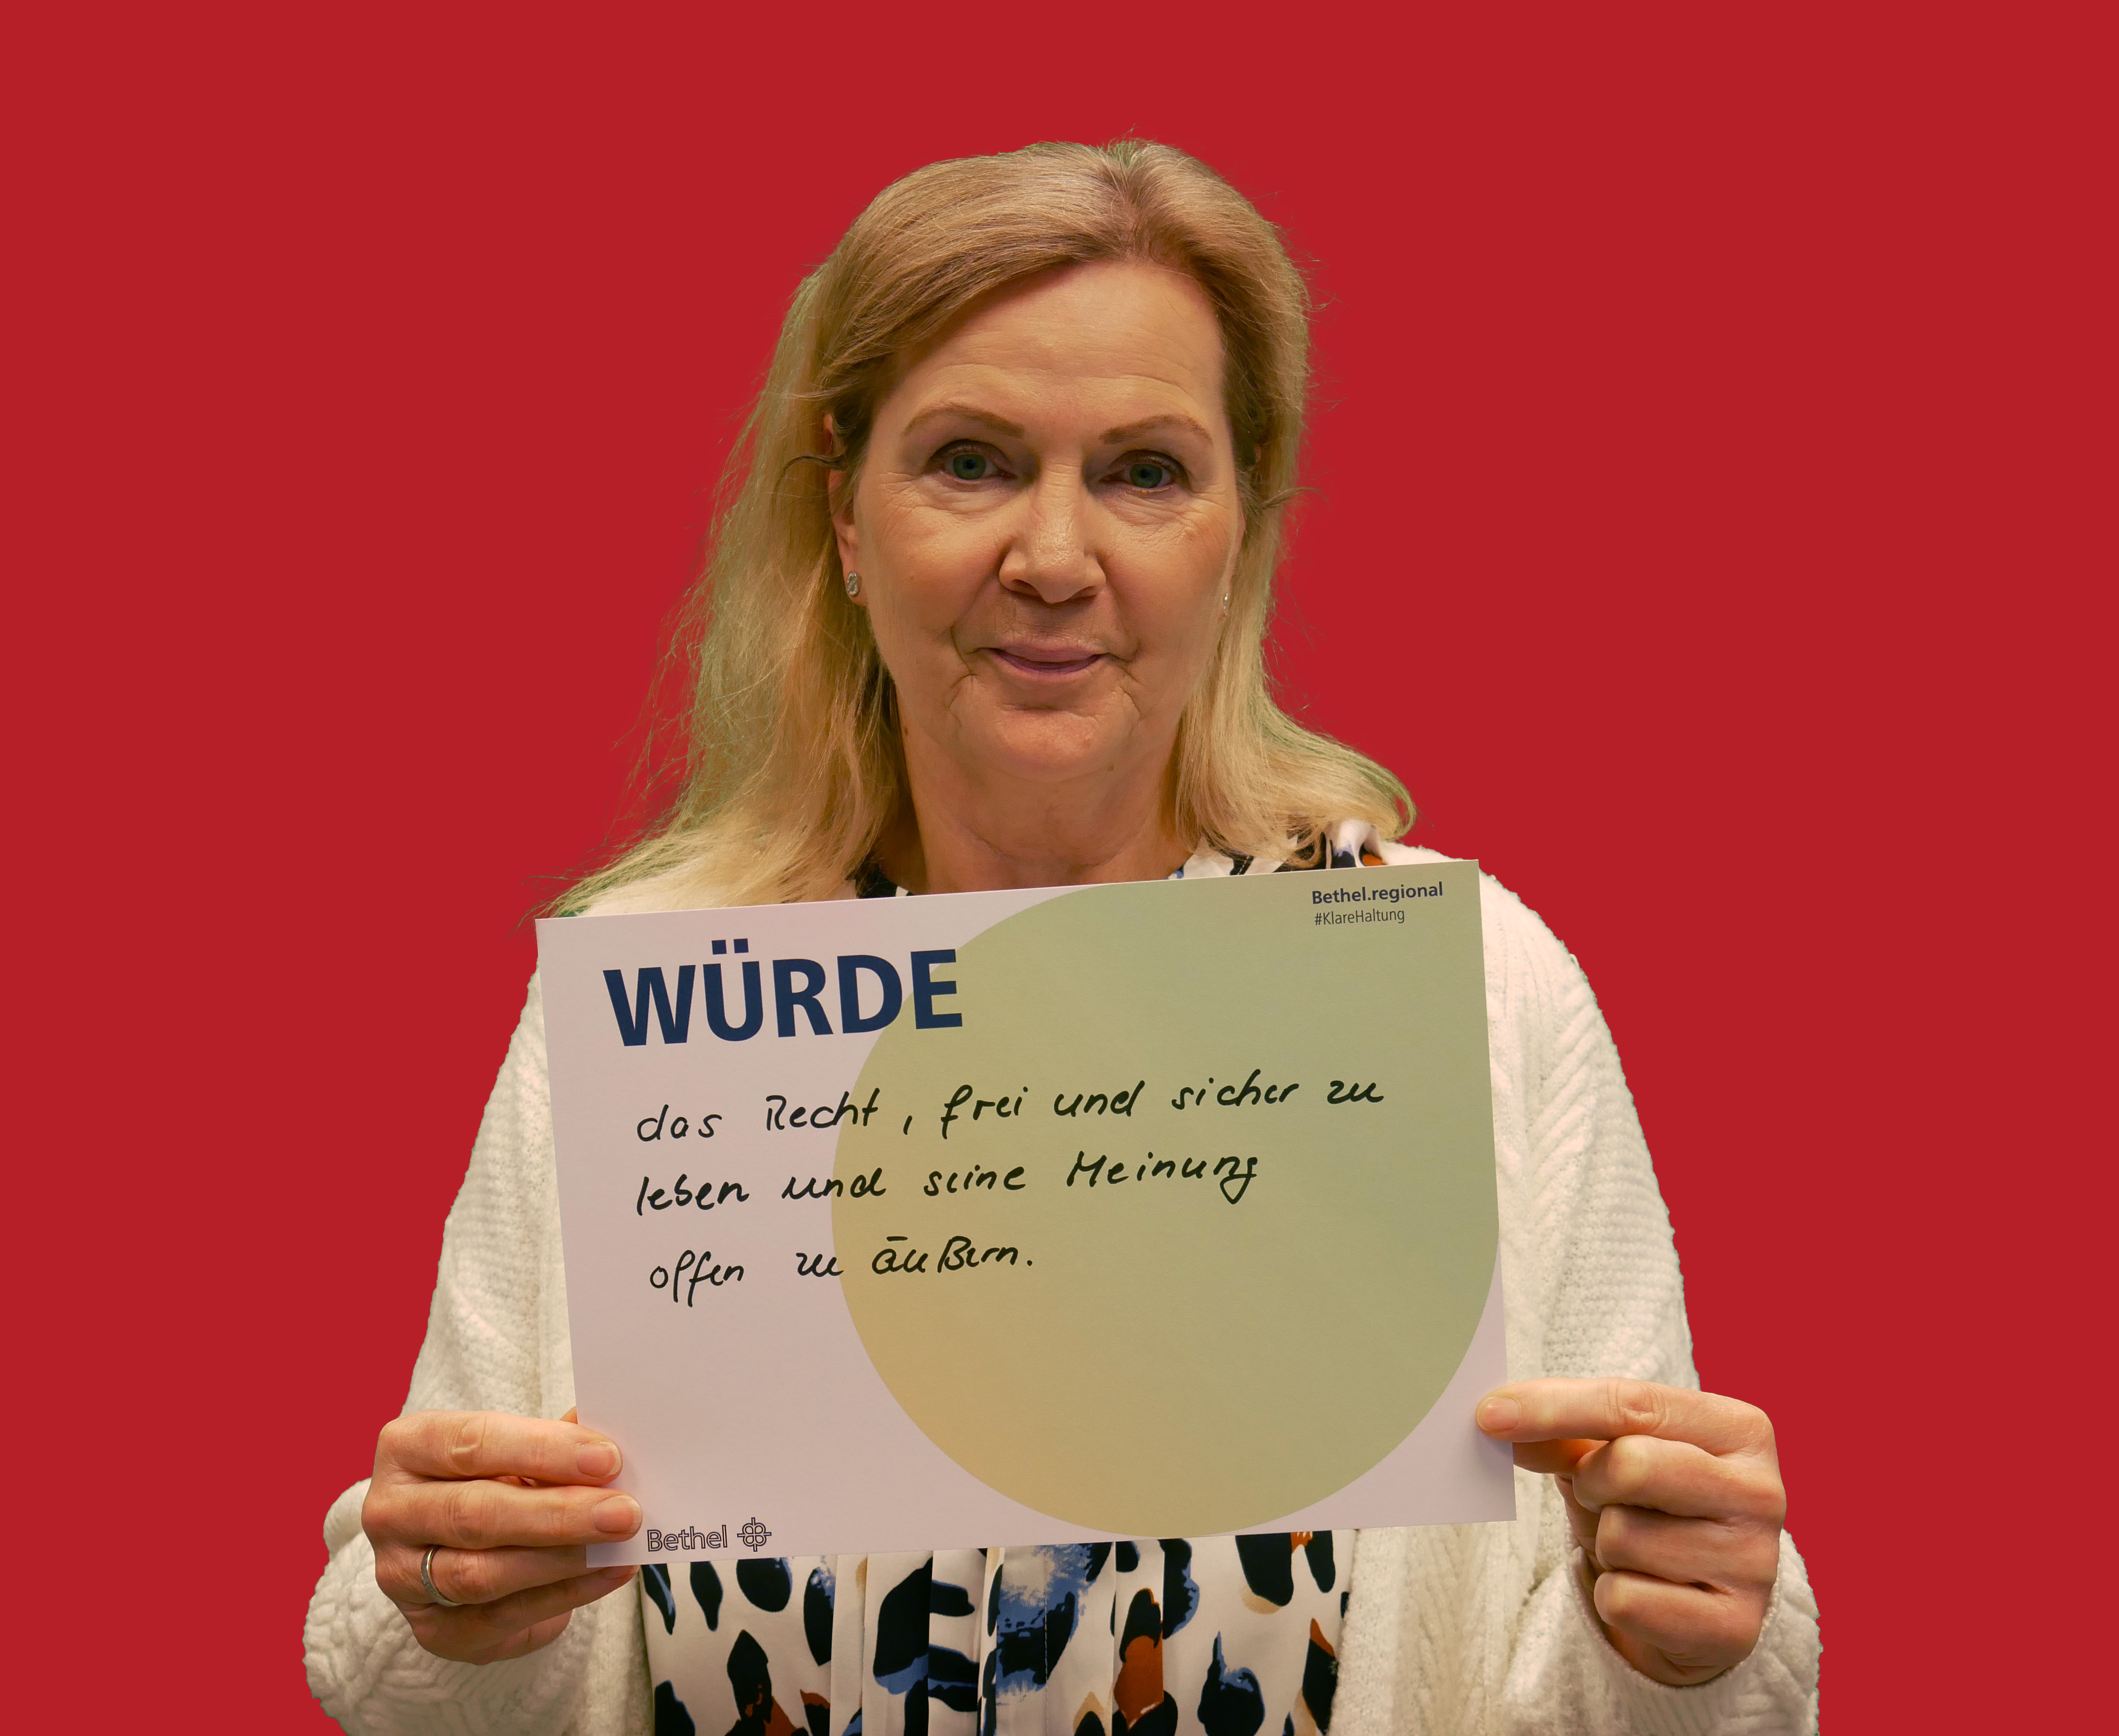 Bethel.regional
#KlareHaltung
WÜRDE
das Recht, frei und sicher zu
leben und seine Meinung
offen zu äußern.
Bethel